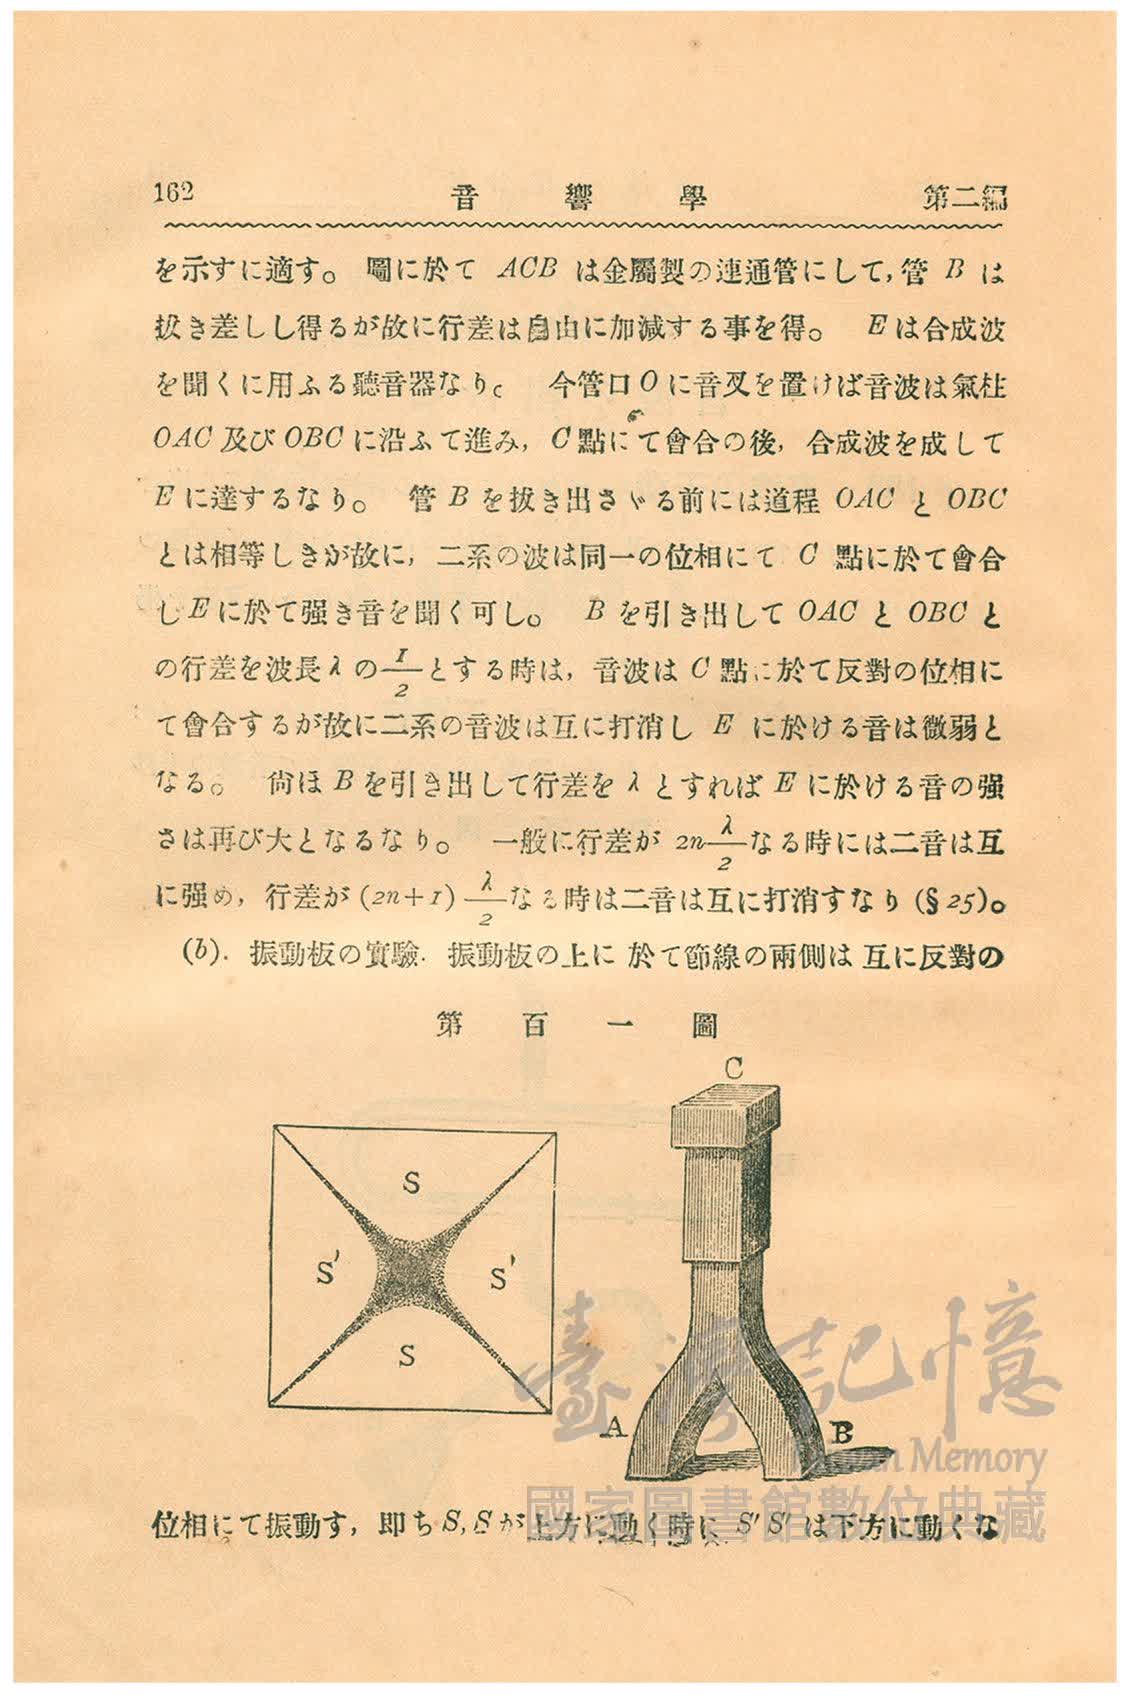 162 音響學 第二編
を示すに適す。 圖に於て ACB は金屬製の連通管にして, 管 B は
拔き差しし得るが故に行差は自由に加減する事を得。 E は合成波
を聞くに用ふる聽音器なり。 今管口 O に音叉を置けば音波は氣柱
OAC 及び OBC に沿ふて進み, C 點にて會合の後, 合成波を成して
E に達するなり。 管 B を拔き出さゞる前には道程 OAC と OBC
とは相等しきが故に, 二系の波は同一の位相にて C 點に於て會合
し E に於て强き音を聞く可し。 B を引き出して OAC と OBC と
の行差を波長 λ の 1/2 とする時は, 音波は C 點に於て反對の位相に
て會合するが故に二系の音波は互に打消し E に於ける音は微弱と
なる。 尙ほ B を引き出して行差を λ とすれば E に於ける音の强
さは再び大となるなり。 一般に行差が 2n λ/2 なる時には二音は互
に强め, 行差が (2n+1) λ/2 なる時は二音は互に打消すなり (§ 25)。
(b). 振動板の實驗. 振動板の上に於て節線の兩側は互に反對の
第百一圖
C
S
S' S'
S
A B
位相にて振動す, 卽ち S, S が上方に動く時に S' S' は下方に動くな
臺灣記憶
Taiwan Memory
國家圖書館數位典藏